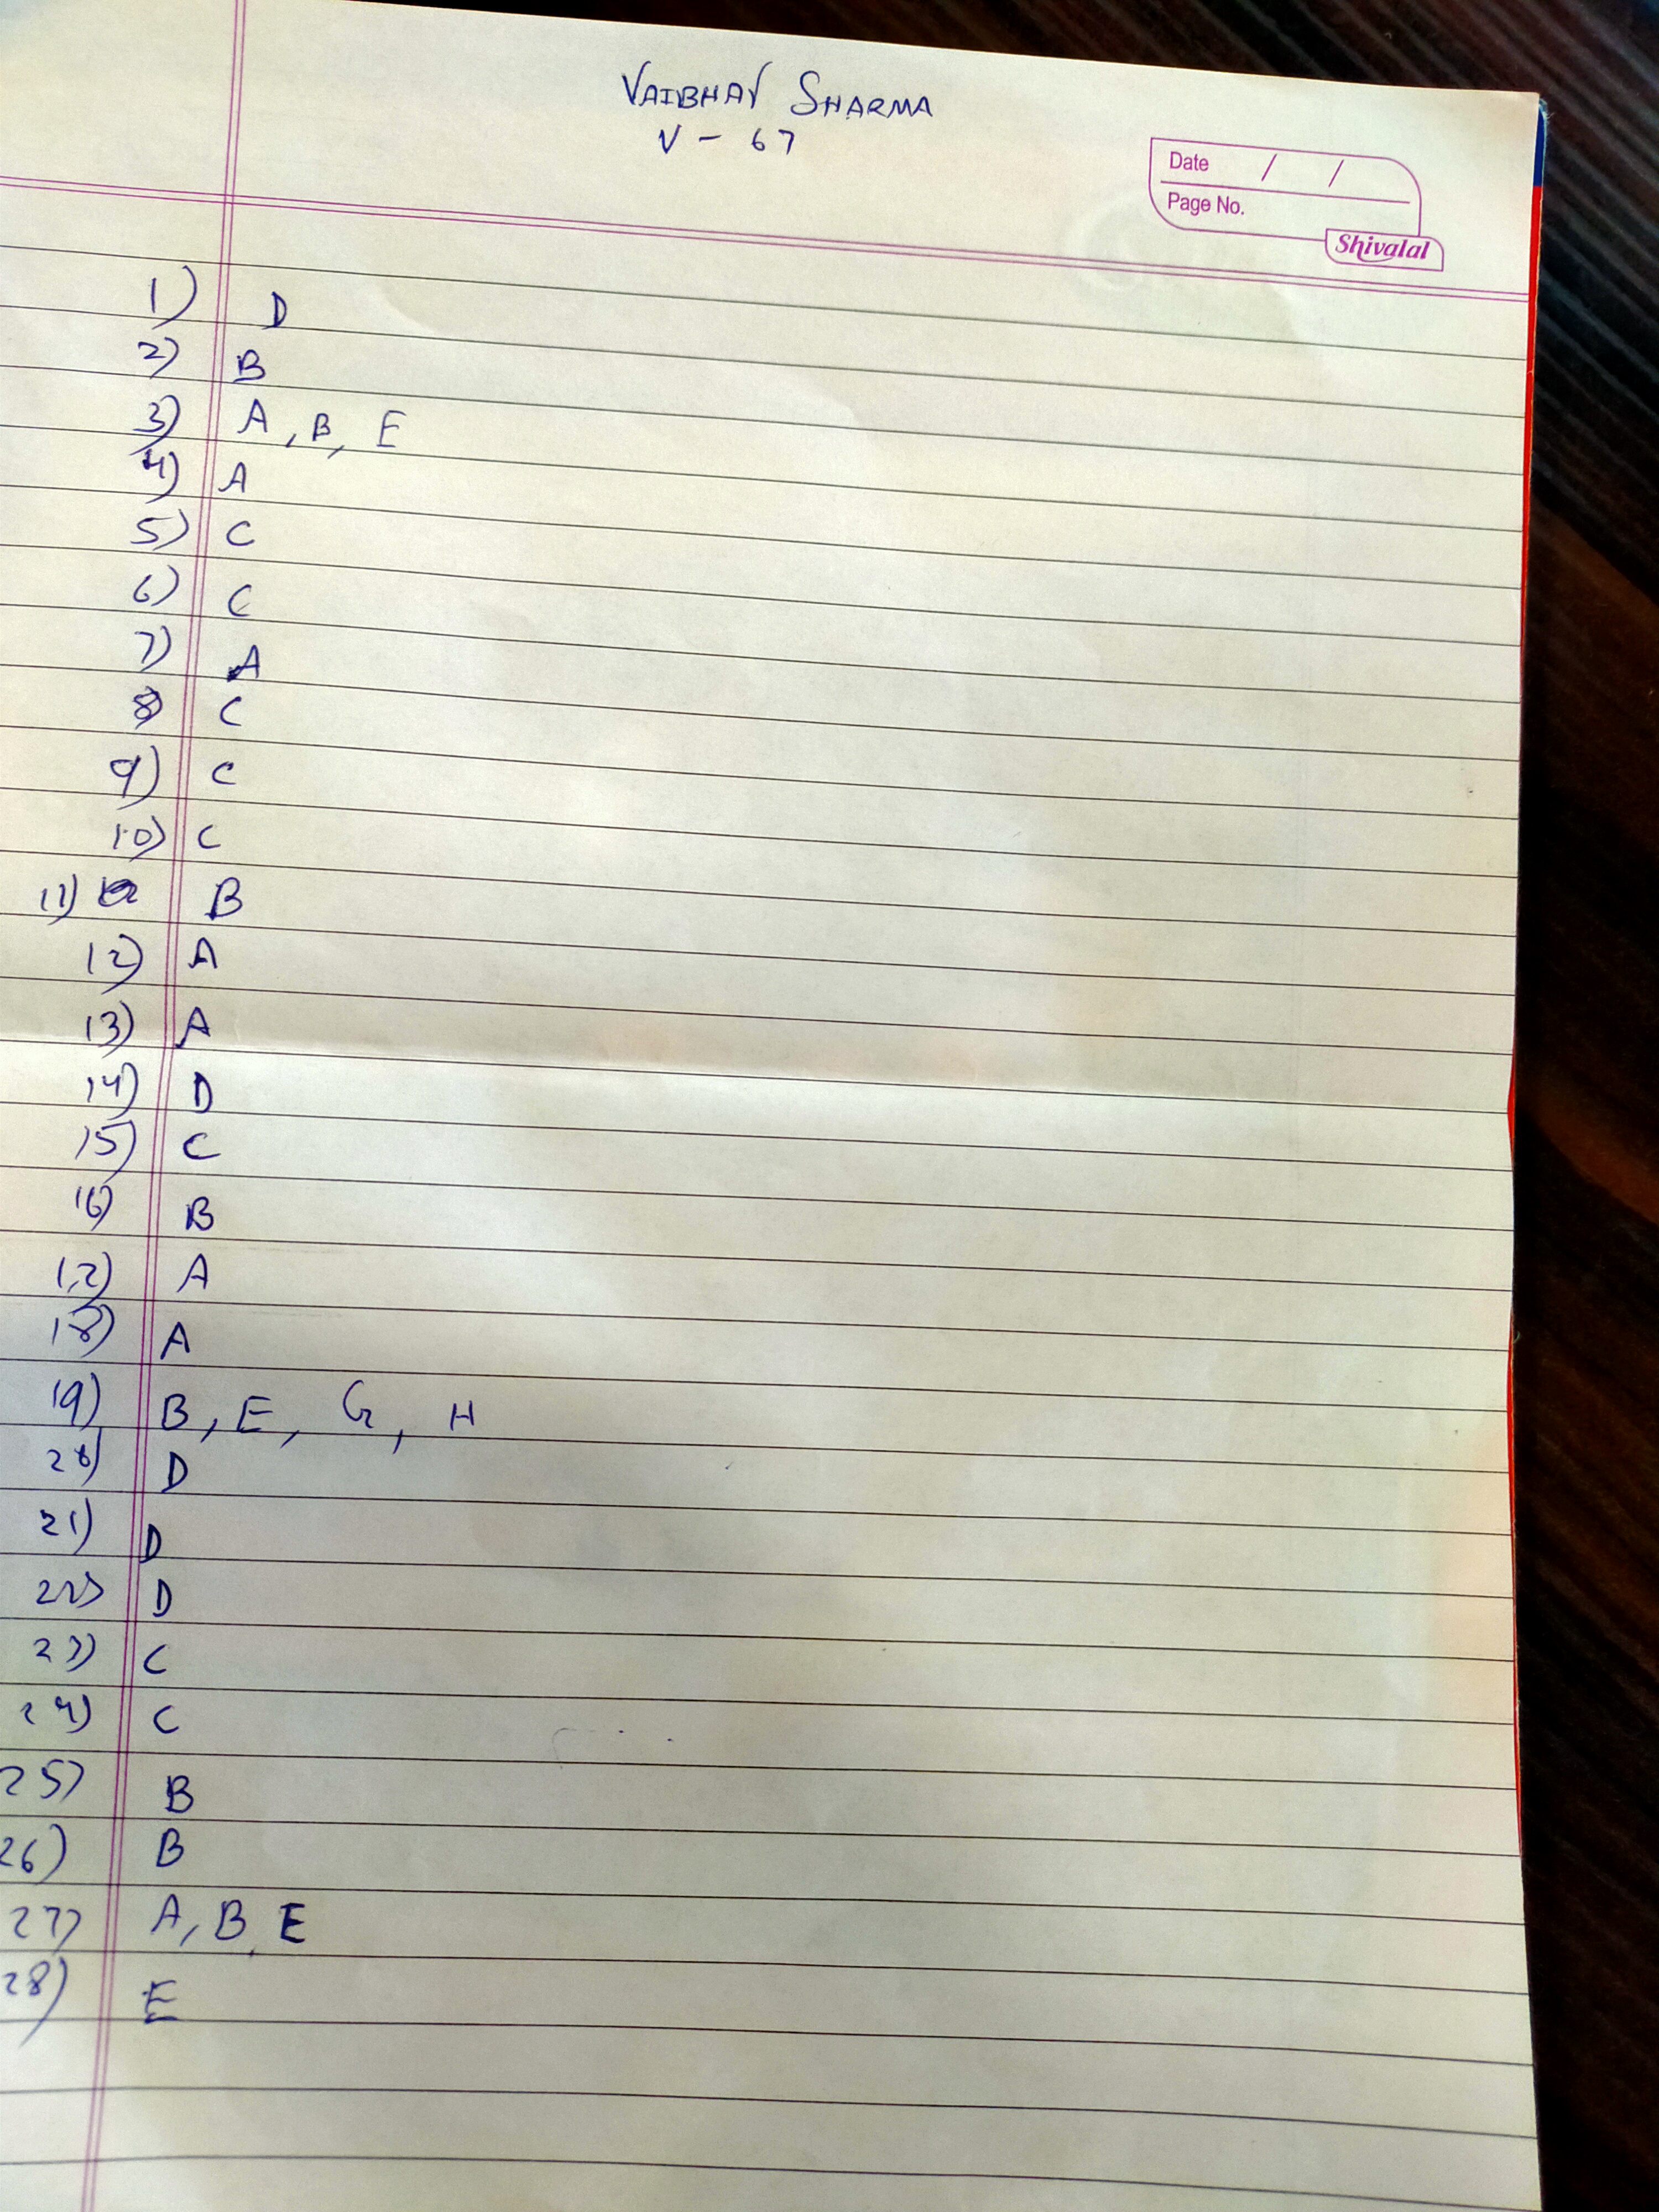 VAIBHAV SHARMA
V - 67
Date / /
Page No.
Shivalal
1) D
2) B
3) A, B, E
4) A
5) C
6) C
7) A
8) C
9) C
10) C
11) B
12) A
13) A
14) D
15) C
16) B
17) A
18) A
19) B, E, G, H
20) D
21) D
22) D
23) C
24) C
25) B
26) B
27) A, B, E
28) E